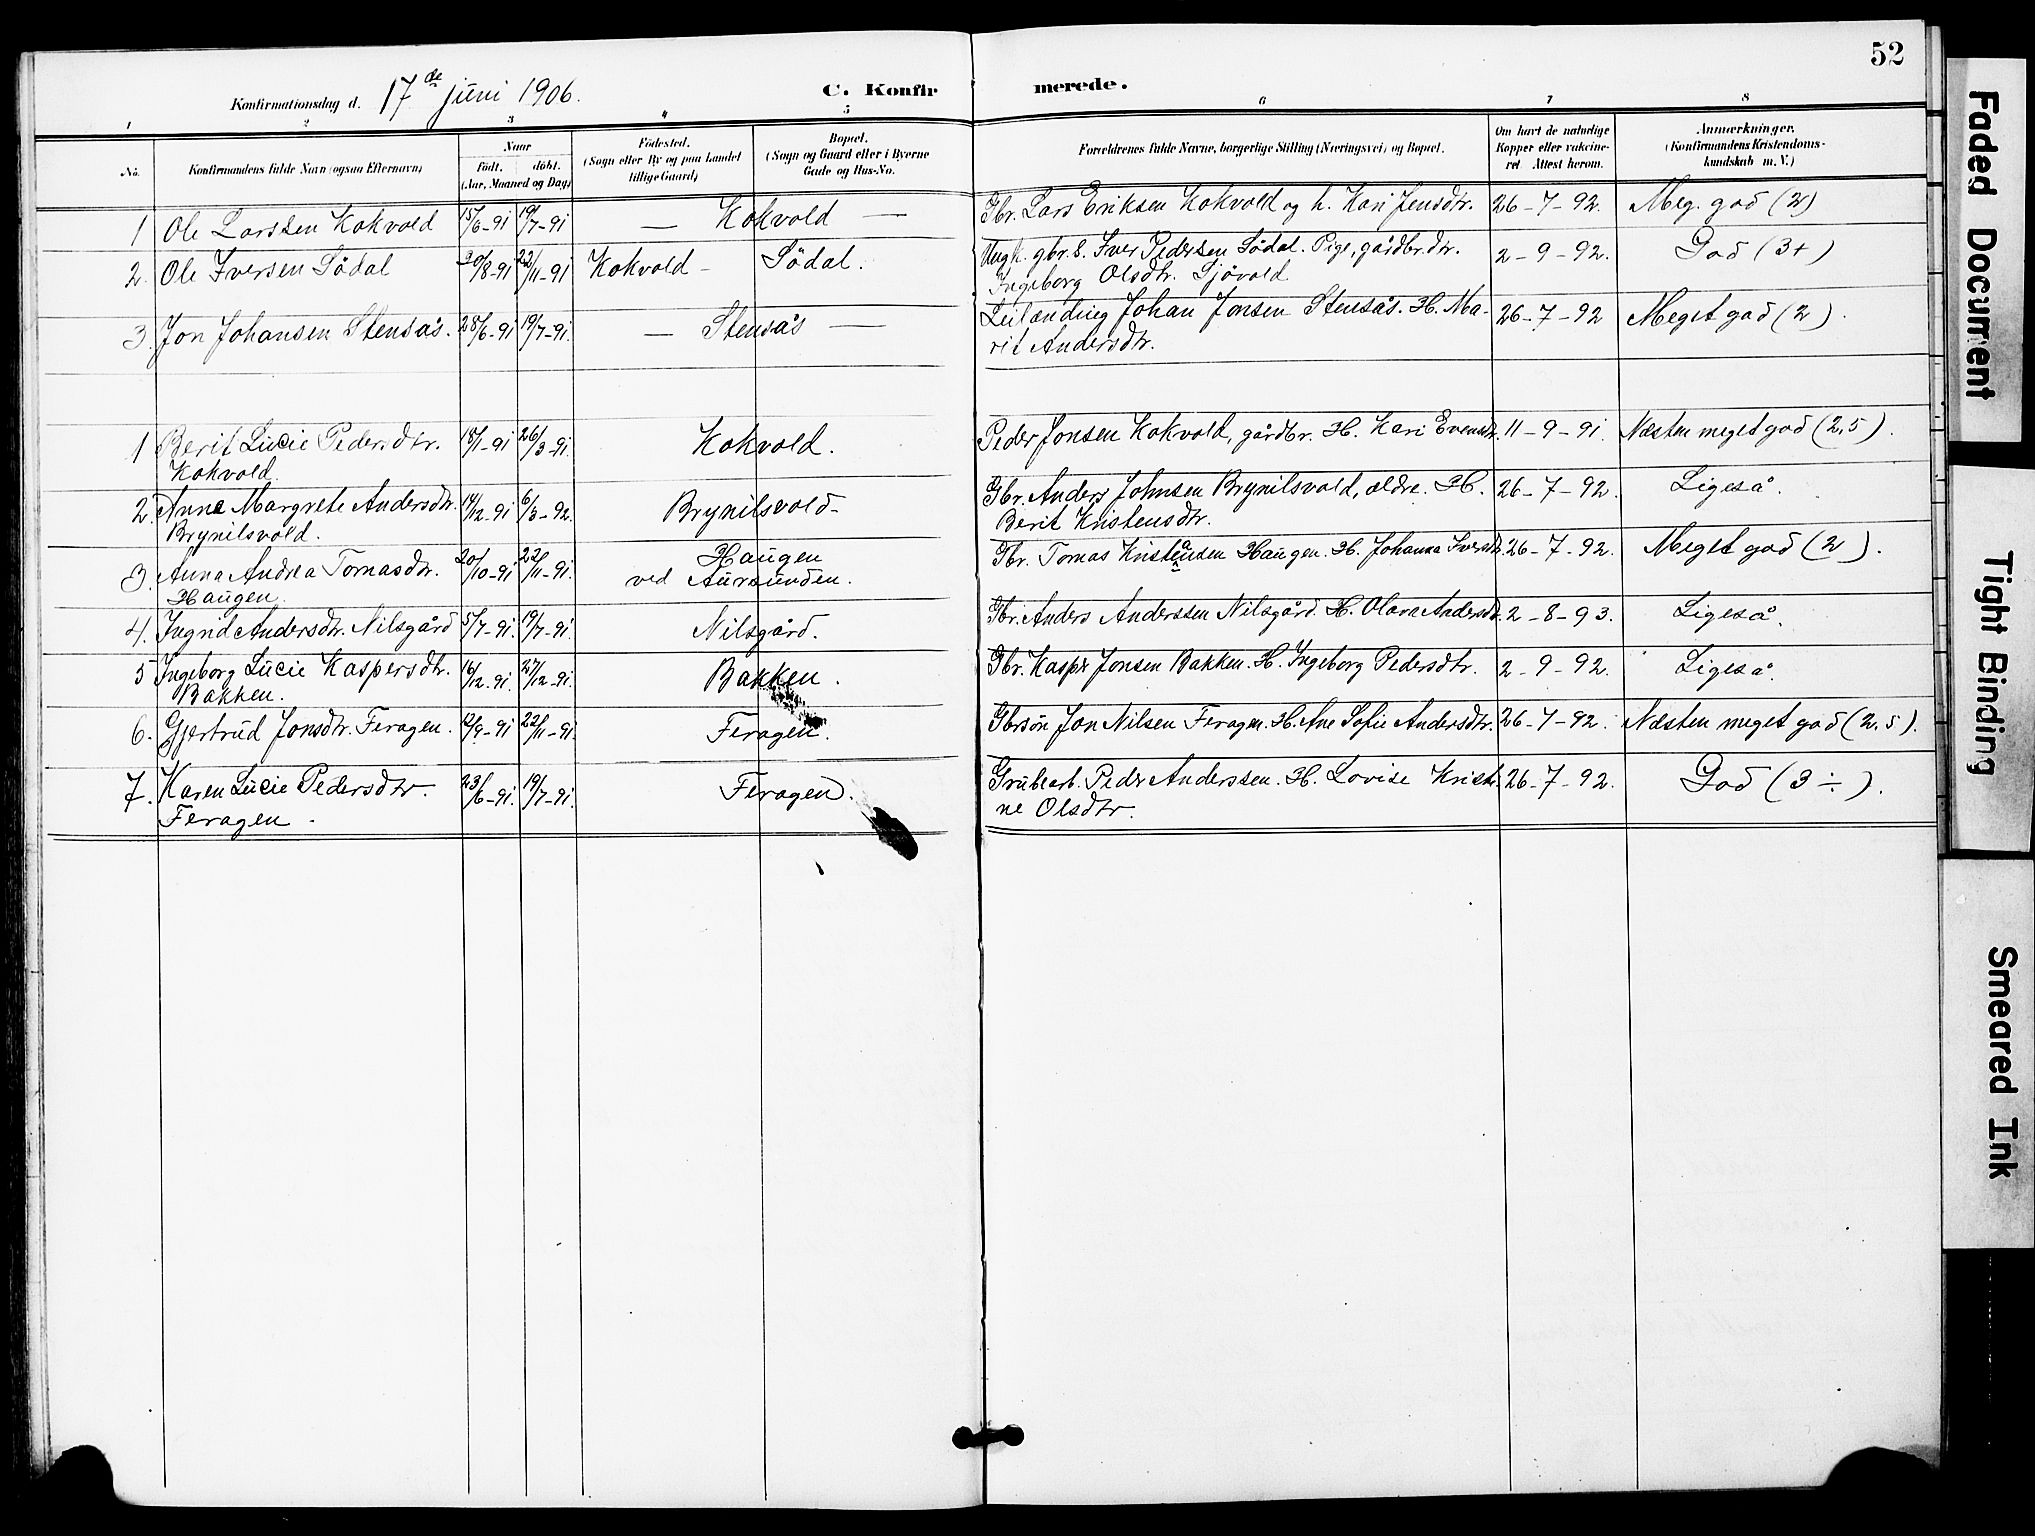 52
Konfirmationsdag d. 17de juni 1906. C. Konfirmerede.
1 2 3 4 5 6 7 8
No.
Konfirmandens fulde Navn (ogsaa Efternavn)
Naar
født. døbt.
(Aar, Maaned og Dag)
Fødested.
(Sogn eller By og paa Landet
tillige Gaard)
Bopæl.
(Sogn og Gaard eller i Byerne
Gade og Hus-No.
Forældrenes fulde Navne, borgerlige Stilling (Næringsvei) og Bopæl.
Om havt de naturlige
Kopper eller vakcine-
ret. Attest herom.
Anmærkninger.
(Konfirmandens Kristendoms-
kundskab m. V.)
1 Ole Larssen Kokvold 15/6-91 19/7-91 — Kokvold — Gbr. Lars Eriksen Kokvold og h. Kari Jensdtr. 26-7-92. Meg. god (2)
2. Ole Iversen Sødal 30/8-91 22/11-91 Kokvold - Sødal. Ungk. gbr. s. Iver Pedersen Sødal. Pige, gårdbr.dtr. 2-9-92. God (3+)
Ingeborg Olsdtr. Sjøvold
3. Jon Johansen Stensås. 28/6-91 19/7-91. — Stensås — Leilænding Johan Jonsen Stensås. H. Ma- 26-7-92 Meget god (2).
rit Andersdtr.
1 Berit Lucie Pedersdtr. 18/1-91 26/3-91. Kokvold. Peder Jonsen Kokvold, gårdbr. H. Kari Evensdtr. 11-9-91. Næsten meget god (2,5).
Kokvold.
2. Anne Margrete Andersdtr. 14/12-91 6/3-92. Brynilsvold- Gbr. Anders Johnsen Brynilsvold, ældre. H. 26-7-92. Ligeså.
Brynilsvold. Berit Kristensdtr.
3. Anna Andrea Tomasdtr. 20/10-91 22/11-91. Haugen Gbr. Tomas Kristensen Haugen. H. Johanna Iversdtr. 26-7-92. Meget god (2).
Haugen. ved Aursunden.
4. Ingrid Andersdtr. Nilsgård 5/7-91. 19/7-91. Nilsgård. Gbr. Anders Anderssen Nilsgård. H. Olava Andersdtr. 2-8-93. Ligeså.
5 Ingeborg Lucie Kaspersdtr. 16/12-91. 27/12-91. Bakken. Gbr. Kasper Jonsen Bakken. H. Ingeborg Pedersdtr. 2-9-92. Ligeså.
Bakken.
6. Gjertrud Jonsdtr. Feragen. 12/9-91 22/11-91. Feragen. Gbrsøn Jon Nilsen Feragen. H. Ane Sofie Andersdtr. 26-7-92. Næsten meget god (2,5).
7. Karen Lucie Pedersdtr. 23/6-91. 19/7-91. Feragen. Grubearb. Peder Anderssen. H. Lovise Kristi- 26-7-92. God (3 ÷).
Feragen. ne Olsdtr.
Faded Document
Tight Binding
Smeared Ink